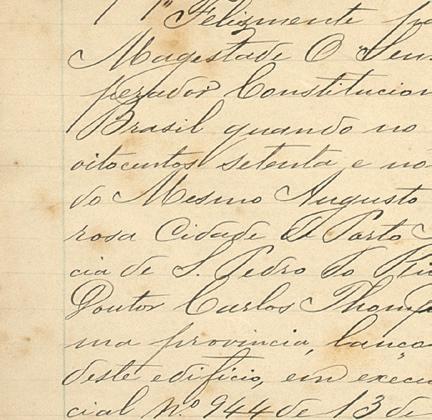 Felizmente
Magestade O Sen
perador Constitucion
Brasil quando no
oitocentos setenta e no
do Mesmo Augusto
rosa Cidade de Porto
cia de S. Pedro do Rio
Doutor Carlos Thomp
ma provincia, lanço
deste edificio, em execu
cial nº 944 de 13 de